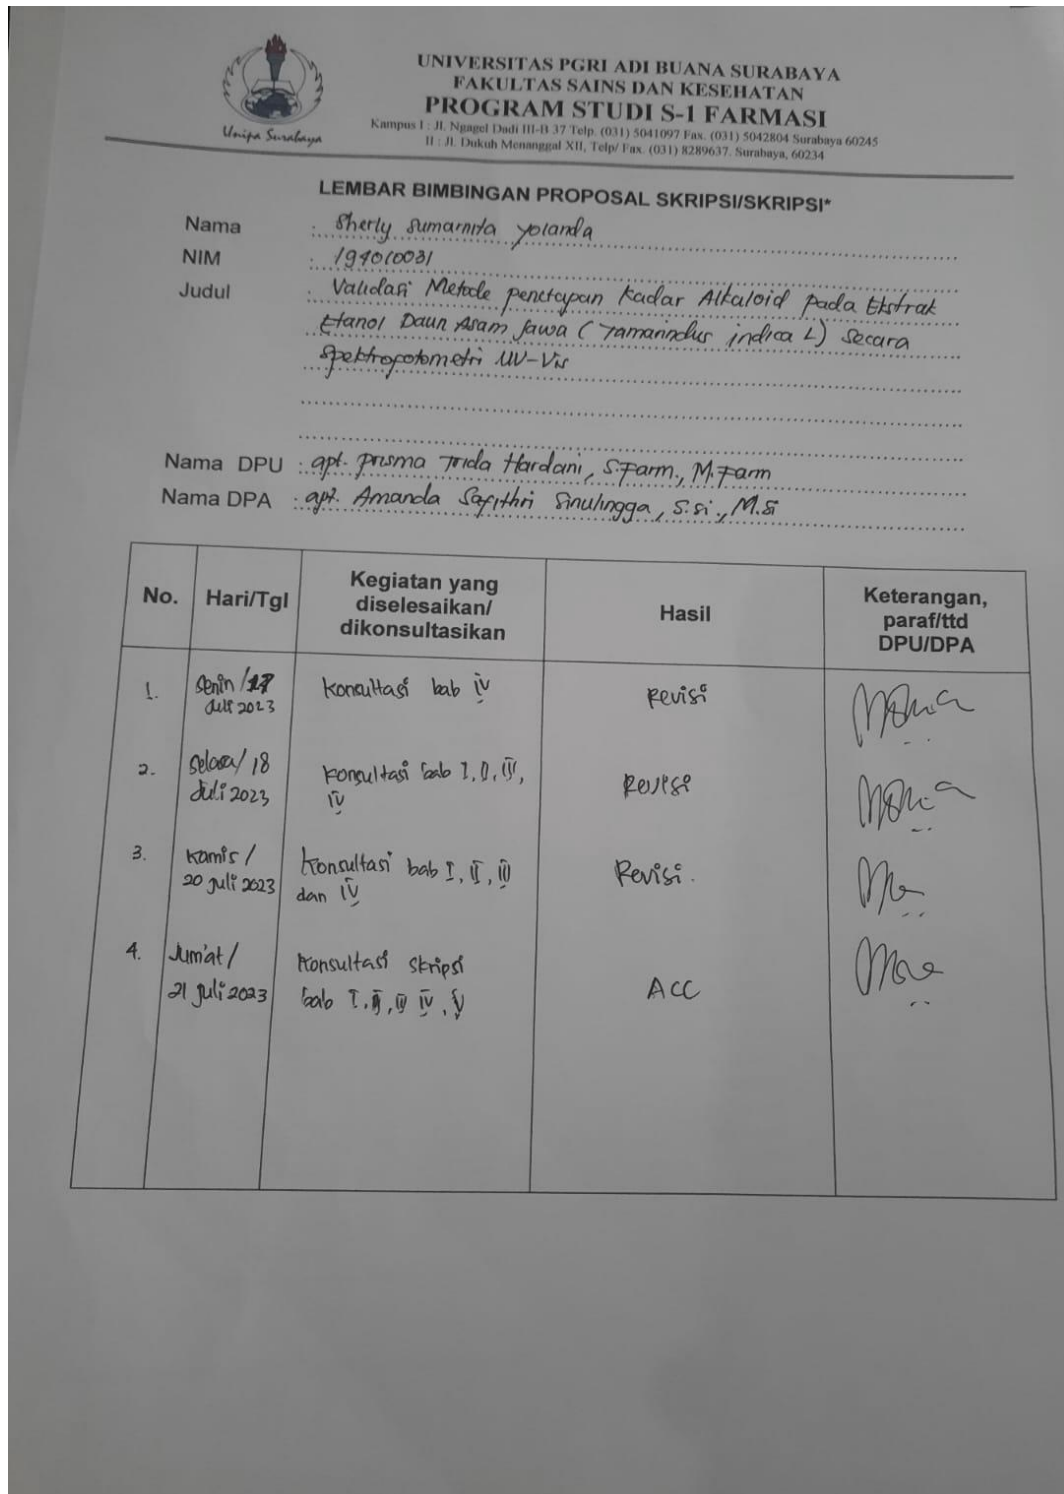 Unipa Surabaya
UNIVERSITAS PGRI ADI BUANA SURABAYA
FAKULTAS SAINS DAN KESEHATAN
PROGRAM STUDI S-1 FARMASI
Kampus I : Jl. Ngagel Dadi III-B 37 Telp. (031) 5041097 Fax. (031) 5042804 Surabaya 60245
II : Jl. Dukuh Menanggal XII, Telp/ Fax. (031) 8289637. Surabaya, 60234
LEMBAR BIMBINGAN PROPOSAL SKRIPSI/SKRIPSI*
Nama : Sherly Sumarnita Yolanda
NIM : 194010031
Judul : Validasi Metode penetapan Kadar Alkaloid pada Ekstrak
Etanol Daun Asam Jawa (Tamarindus indica L) Secara
Spektrofotometri UV-Vis
Nama DPU : apt. Prisma Trida Hardani, S.Farm., M.Farm
Nama DPA : apt. Amanda Safithri Sinulingga, S.si., M.Si
No. Hari/Tgl Kegiatan yang diselesaikan/ dikonsultasikan Hasil Keterangan, paraf/ttd DPU/DPA
1. Senin / 17 Juli 2023 Konsultasi bab IV Revisi
2. Selasa / 18 Juli 2023 Konsultasi bab I, II, III, IV Revisi
3. Kamis / 20 Juli 2023 Konsultasi bab I, II, III dan IV Revisi.
4. Jum'at / 21 Juli 2023 Konsultasi skripsi bab I, II, III IV, V ACC